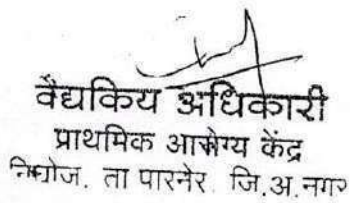 वैद्यकिय अधिकारी
प्राथमिक आरोग्य केंद्र
निघोज. ता पारनेर. जि.अ.नगर